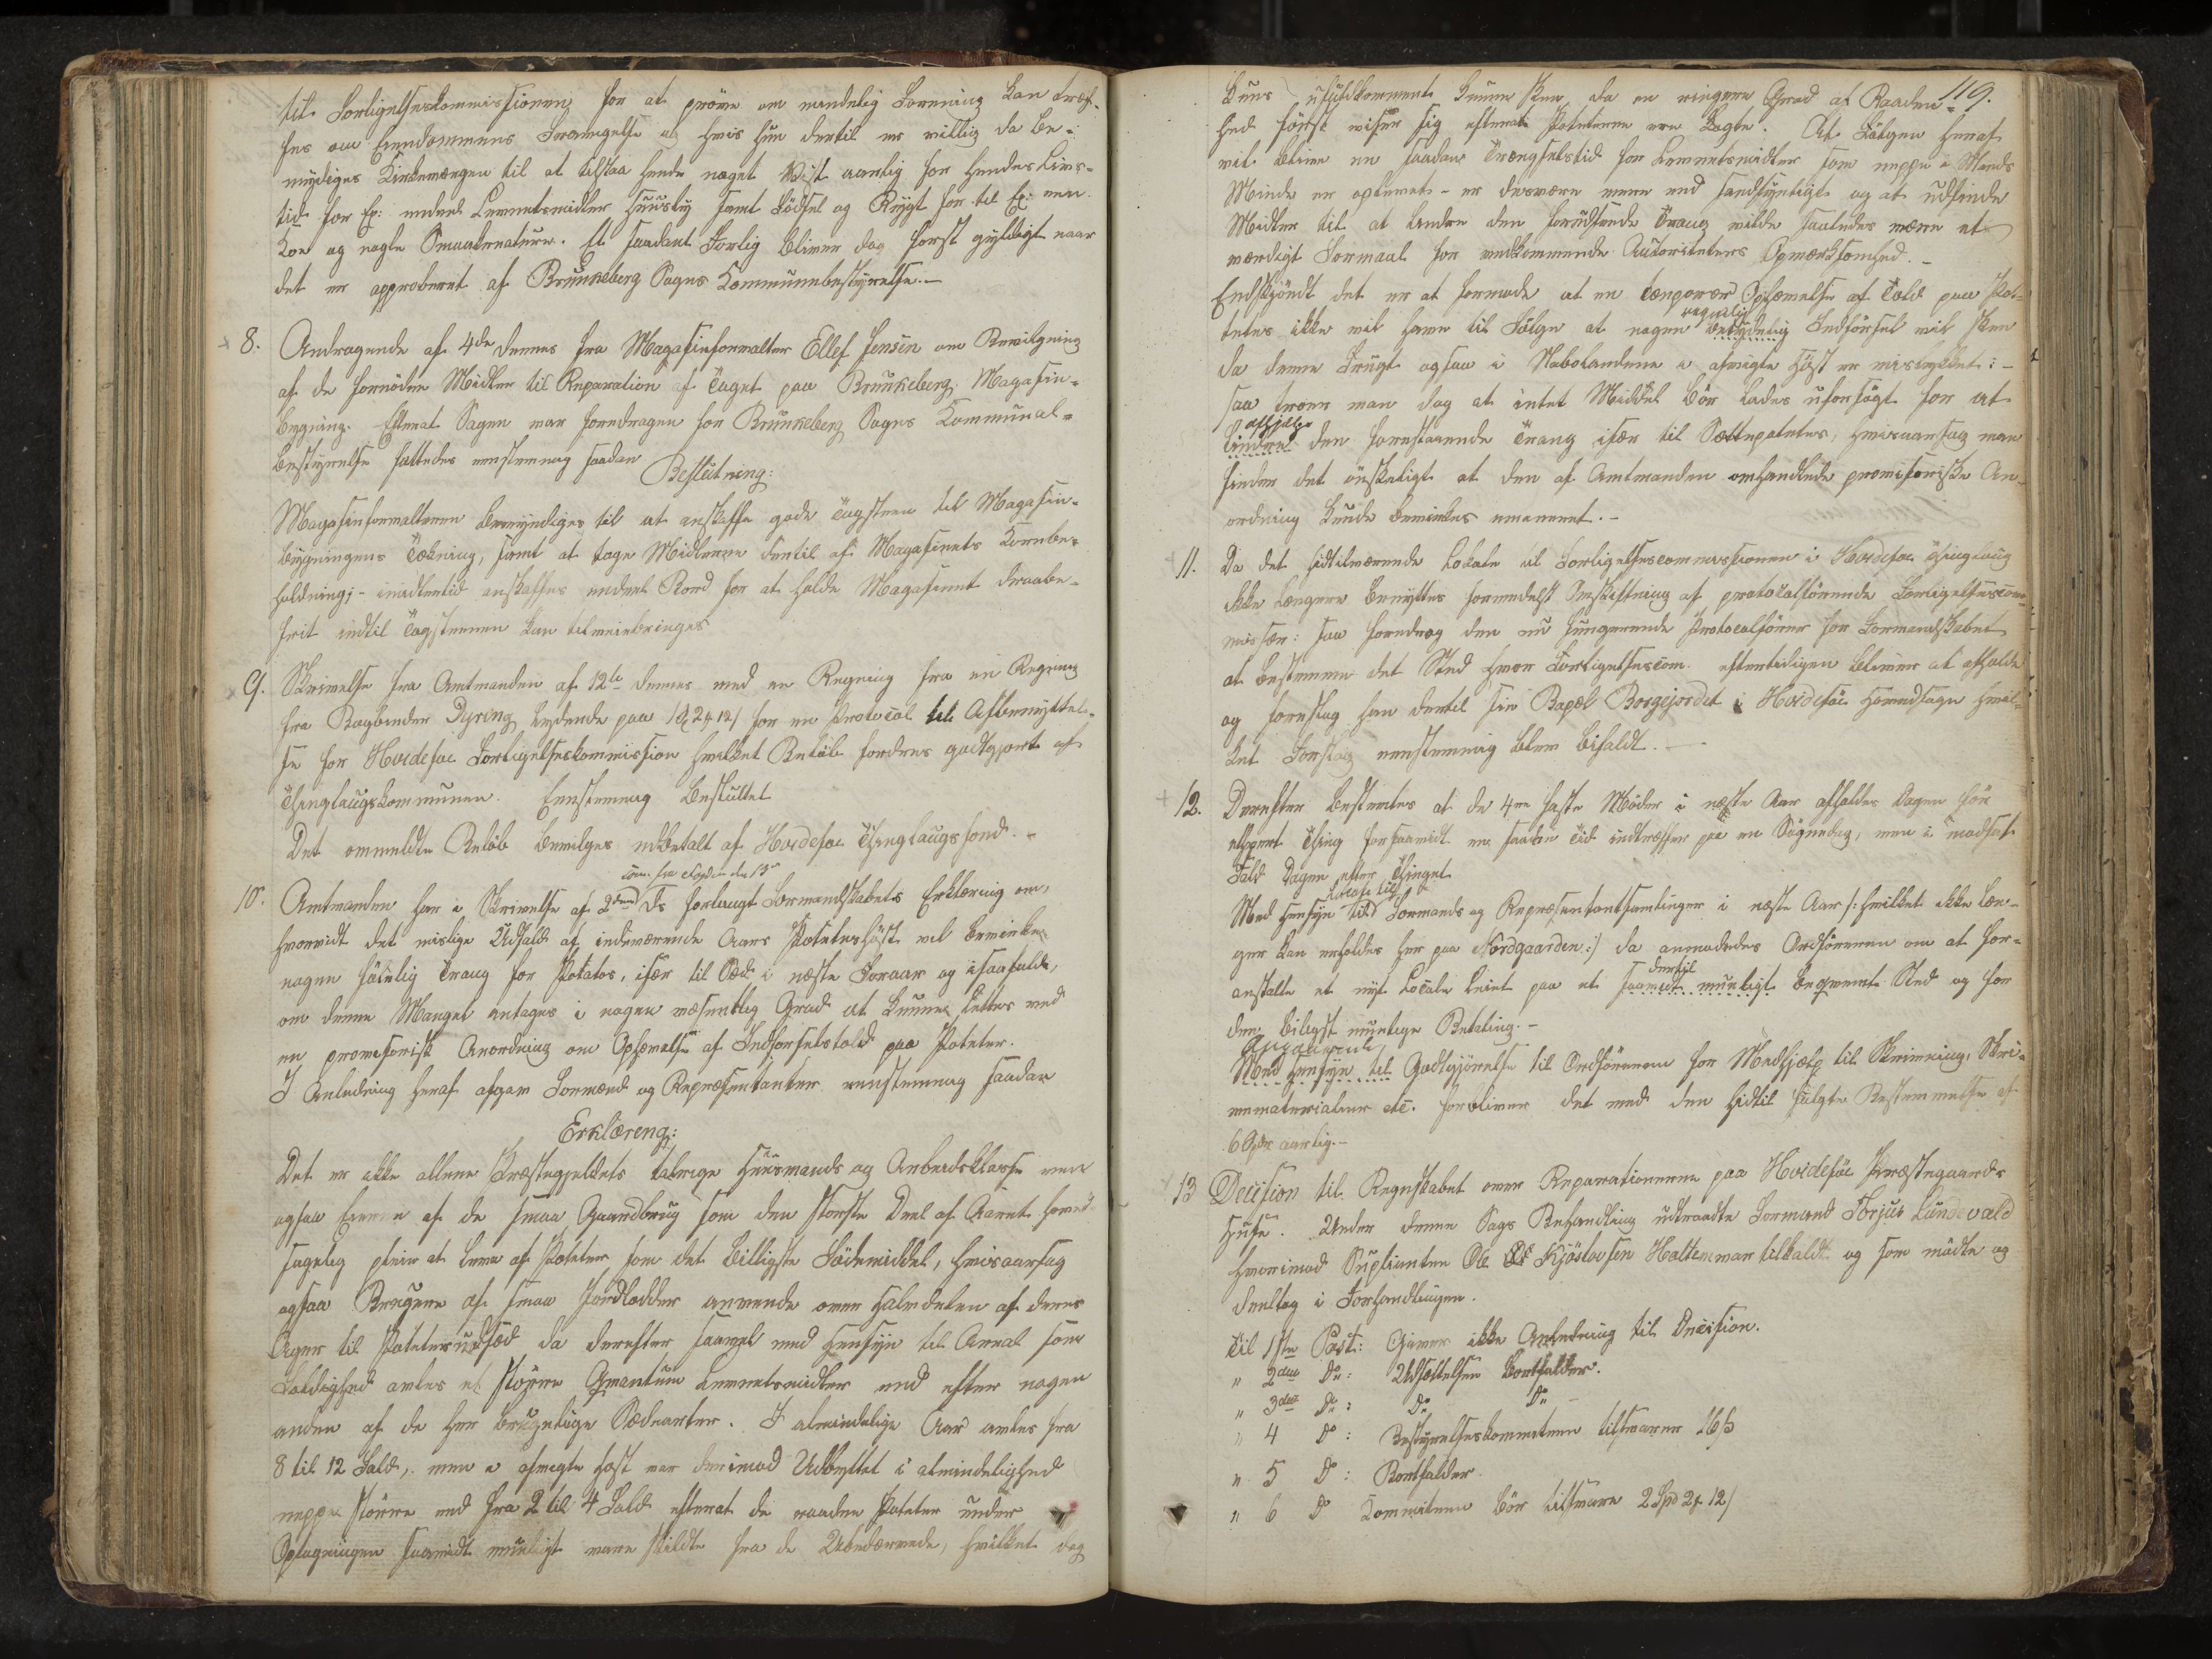 til Forligelseskommissionen for at prøve om mindelig Forening kan træf-
fes om Eiendommens Fravigelse og hvis hun dertil er villig da be-
myndiges Kirkeværgen til at tilstaa hende noget Vist aarlig for hendes Livs-
tid for Ex: endeel Levnetsmidler Huusly samt Födsel og Røgt for til Ex: een
Koe og nogle Smaakreature. Et saadant Forlig bliver dog först gyldigt naar
det er approberet af Brunkeberg Sogns Kommunebestyrelse.—
8. Andragende af 4de dennes fra Magasinforvalter Ellef Jensen om Bevilgning
af de fornödne Midler til Reparation af Taget paa Brunkeberg Magasin-
bygning. Efterat Sagen var foredragen for Brunkeberg Sogns Kommunal-
bestyrelse fattedes eenstemmig saadan
Beslutning:
Magasinforvalteren bemyndiges til at anskaffe gode Tagsteen til Magasin-
bygningens Tækning, samt at tage Midlerne dertil af Magasinets Kornbe-
holdning; - imidlertid anskaffes endeel Bord for at holde Magasinet draabe-
frit indtil Tagstenen kan tilveiebringes
9. Skrivelse fra Amtmanden af 12te dennes med en Regning fra en Regning
fra Bogbinder Dyring lydende paa 1 Spd 2 24 12/ for en Protocol til Afbenyttel-
se for Hvideseie Forligelseskommission hvilket Belöb fordres godtgjort af
Thinglaugskommunen. Eenstemmig besluttet
Det ommeldte Belöb bevilges udbetalt af Hvideseie Thinglaugsfond. -
10. Amtmanden har i Skrivelse af 2den ds forlangt Formandskabets Erklæring om,
hvorvidt det mislige Udfald af indeværende Aars Potetes höst vil bevirke
nogen fölelig Trang for Potetes, især til Sæd i næste Foraar og isaafald,
om denne Mangel antages i nogen væsentlig Grad at kunne lettes ved
en provisorisk Anordning om Ophævelse af Indförselstold paa Poteter.
I Anledning heraf afgav Formænd og Repræsentanter eenstemmig saadan
Erklæring:
Det er ikke allene Præstegjeldets talrige Huusmands og Arbeidsklasse men
ogsaa Eierne af de smaa Gaardbrug som den störste Deel af Aaret hoved-
sagelig pleie at leve af Poteter som det billigste Födemiddel, hvisaarsag
ogsaa Brugere af smaa Jordlodder anvende over Halvdelen af deres
Ager til Potetesudsæd da derefter saavel med Hensyn til Areal som
Foldighed avles et större Qvantum Levnetsmidler end efter nogen
anden af de her brugelige Sædearter. I almindelige Aar avles fra
8 til 12 Fold, men i afvigte Höst var derimod Udbyttet i almindelighed
neppe större end fra 2 til 4 Fold efterat de raadne Poteter under
Optagningen saavidt muligt vare skildte fra de Ubedærvede, hvilket dog
119.
kuns ufuldkomment kunne skee, da en ringere Grad af Raaden-
hed först viser sig efterat Poteterne ere kogte. At Fölgen heraf
vil blive en saadan Trængselstid for Levnetsmidler som neppe i Mands
Minde er oplevet - er desværre mere end sandsynligt og at udfinde
Midler til at lindre den forudseede Trang vilde saaledes være et
værdigt Formaal for vedkommende Autoriteters Opmærksomhed. -
Endskjöndt det er at formode at en temporær Ophævelse af Told paa Pot-
tetes ikke vil have til Fölge at nogen betydelig Indförsel vil skee
da denne Frugt ogsaa i Nabolandene i afvigte Höst er mislykket: -
saa troer man dog at intet Middel bör lades uforsögt for at
afhjælpe
lindre den forestaaende Trang især til Sættepotetes, hvisaarsag man
finder det önskeligt at den af Amtmanden omhandlede provisoriske An-
ordning kunde bevirkes emaneret. -
11. Da det hidtilværende Lokale til Forligelsescommissionen i Hvideseie Thinglaug
ikke længere benyttes formedelst Omskiftning af protocolförende Forligelsescom-
missær: saa foredrog den nu fungerende Protocolförer for Formandskabet
at bestemme det Sted hvor Forligelsescom. eftertidigen bliver at afholde
og foreslog han dertil sin Bopæl Borgejordet i Hvideseie Hovedsogn hvil-
ket Forslag eenstemmig blev bifaldt. -
12. Derefter bestemtes at de 4re faste Möder i næste Aar afholdes Dagen för
ethvert Thing forsaavidt en saadan Tid indtræffer paa en Sögnedag, men i modsat
Fald Dagen efter Thinget.
Med Hensyn til Formands og Repræsentantsamlinger i næste Aar /: hvilket ikke læn-
ger kan erholdes her paa Nordgaarden :/ da anmodedes Ordföreren om at for-
anstalte et nyt Locale leiet paa et dertil saavidt muligt beqvemt Sted og for
den billigst mulige Betaling. -
Angaaende
Med Hensyn til Godtgjörelse til Ordföreren for Medhjælp til Skrivning, Skri-
vematerialier etc. forbliver det med den hidtil fulgte Bestemmelse af
6 Spd aarlig. -
13 Decision til Regnskabet over Reparationerne paa Hvideseie Præstegaards
Huse. Under denne Sags Behandling udtraadte Formand Torjus Lundevald
hvorimod Suplianten Ole Kjöstovsen Holtene var tilkaldt og som mödte og
deeltog i Forhandlingen.
Til 1ste Post: Giver ikke Anledning til Decision.
" 2den Do: Udsættelsen bortfalder.
" 3die Do: Do Do -
" 4 Do: Bestyrelseskommiteen tilsvarer 16 ß
" 5 Do: Bortfalder.
" 6 Do Kommiteen bör tilsvare 2 Spd 2 24 12/